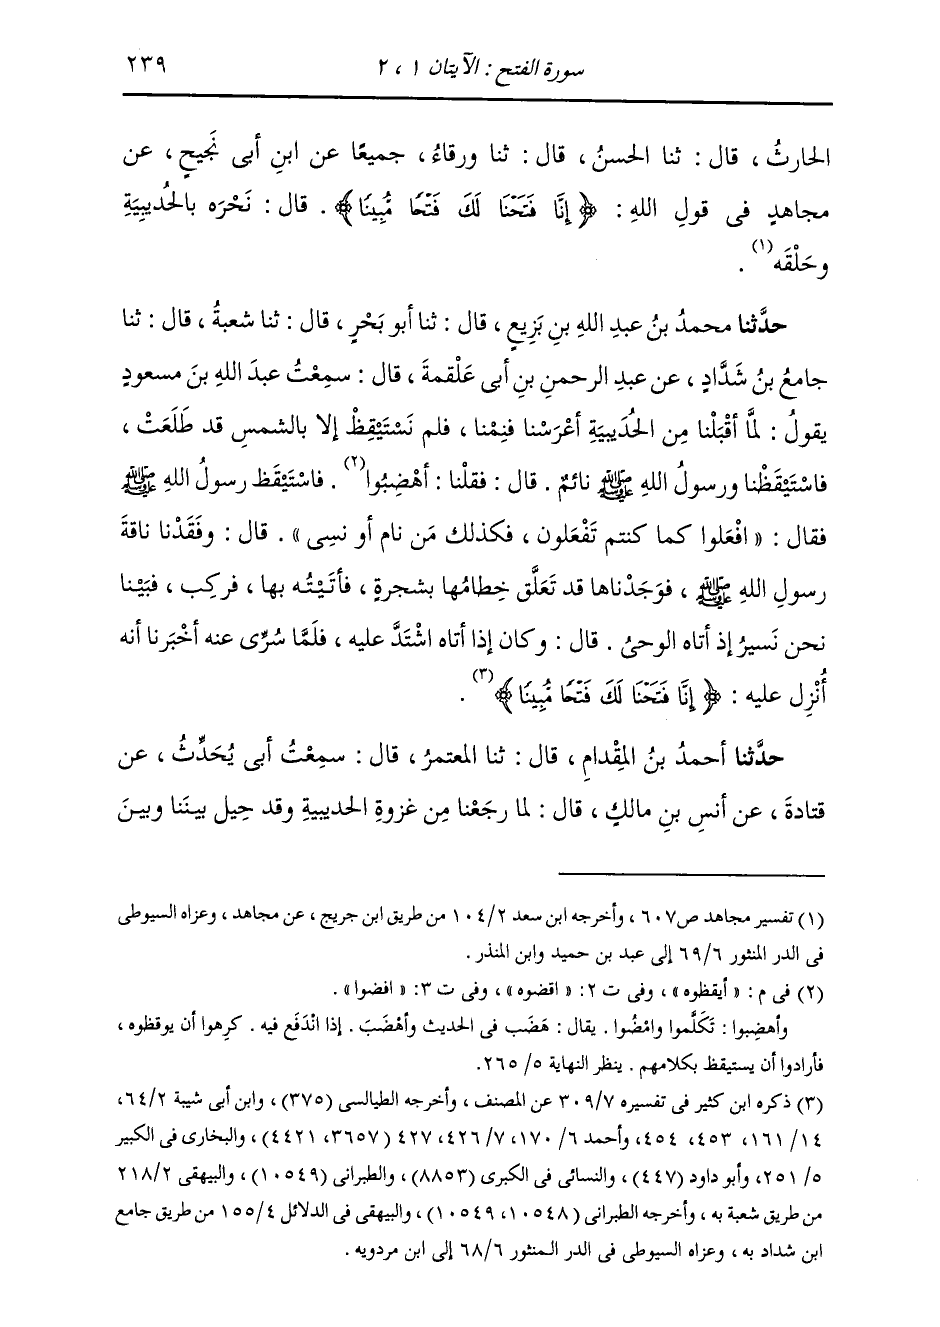 سورة الفتح : الآيتان ١ ، ٢ ٢٣٩
الحارثُ ، قال : ثنا الحسنُ ، قال : ثنا ورقاءُ ، جميعًا عن ابنِ أبى نَجيحٍ ، عن
مجاهدٍ فى قولِ اللهِ : ﴿ إِنَّا فَتَحْنَا لَكَ فَتْحًا مُّبِينًا ﴾ . قال : نَحْرَه بالحُديبيَةِ
وحَلْقَه(١) .
حدَّثنا محمدُ بنُ عبدِ اللهِ بنِ بَزِيعٍ ، قال : ثنا أبو بَحْرٍ ، قال : ثنا شعبةُ ، قال : ثنا
جامعُ بنُ شَدَّادٍ ، عن عبدِ الرحمنِ بنِ أبى عَلْقمةَ ، قال : سمِعْتُ عبدَ اللهِ بنَ مسعودٍ
يقولُ : لمَّا أقْبَلْنا مِن الحُدَيبيَةِ أعْرَسْنا فنِمْنا ، فلم نَسْتَيْقِظْ إلا بالشمسِ قد طَلَعَتْ ،
فاسْتَيْقَظْنا ورسولُ اللهِ ﷺ نائمٌ . قال : فقلْنا : أهْضِبُوا(٢) . فاسْتَيْقَظ رسولُ اللهِ ﷺ
فقال : « افْعَلوا كما كنتم تَفْعَلون ، فكذلك مَن نام أو نسِى » . قال : وفَقَدْنا ناقةَ
رسولِ اللهِ ﷺ ، فوَجَدْناها قد تَعَلَّق خِطامُها بشجرةٍ ، فأتَيْتُه بها ، فركِب ، فبَيْنا
نحن نَسيرُ إذ أتاه الوحىُ . قال : وكان إذا أتاه اشْتَدَّ عليه ، فلَمَّا سُرِّى عنه أخْبَرنا أنه
أُنْزِل عليه : ﴿ إِنَّا فَتَحْنَا لَكَ فَتْحًا مُّبِينًا ﴾(٣) .
حدَّثنا أحمدُ بنُ المِقْدامِ ، قال : ثنا المعتمرُ ، قال : سمِعْتُ أبى يُحَدِّثُ ، عن
قتادةَ ، عن أنسِ بنِ مالكٍ ، قال : لما رجَعْنا مِن غزوةِ الحديبيةِ وقد حِيل بينَنا وبينَ
(١) تفسير مجاهد ص٦٠٧ ، وأخرجه ابن سعد ١٠٤/٢ من طريق ابن جريج ، عن مجاهد ، وعزاه السيوطى
فى الدر المنثور ٦٩/٦ إلى عبد بن حميد وابن المنذر .
(٢) فى م : « أيقظوه » ، وفى ت ٢: « اقضوه » ، وفى ت ٣: « افضوا » .
وأهضِبوا : تَكَلَّموا وامْضُوا . يقال : هَضَب فى الحديث وأهْضَبَ . إذا انْدَفَع فيه . كرِهوا أن يوقظوه ،
فأرادوا أن يستيقظ بكلامهم . ينظر النهاية ٥/ ٢٦٥.
(٣) ذكره ابن كثير فى تفسيره ٣٠٩/٧ عن المصنف ، وأخرجه الطيالسى (٣٧٥) ، وابن أبى شيبة ٦٤/٢،
١٤/ ١٦١، ٤٥٣، ٤٥٤، وأحمد ٦/ ١٧٠، ٧/ ٤٢٦، ٤٢٧ (٣٦٥٧، ٤٤٢١) ، والبخارى فى الكبير
٥/ ٢٥١، وأبو داود (٤٤٧) ، والنسائى فى الكبرى (٨٨٥٣) ، والطبرانى (١٠٥٤٩) ، والبيهقى ٢١٨/٢
من طريق شعبة به ، وأخرجه الطبرانى (١٠٥٤٨، ١٠٥٤٩) ، والبيهقى فى الدلائل ١٥٥/٤ من طريق جامع
ابن شداد به ، وعزاه السيوطى فى الدر المنثور ٦٨/٦ إلى ابن مردويه .